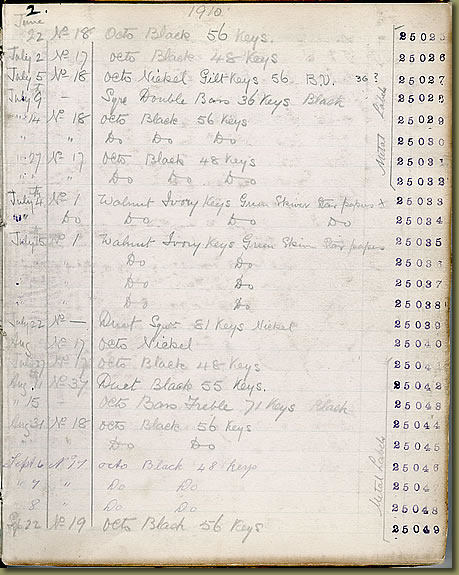 2. 1910
June
22 No 18 Octo Black 56 Keys. 25025
July 2 No 17 Octo Black 48 Keys 25026
July 5 No 18 Octo Nickel Gilt Keys 56 B.V. 36? 25027
July 9 - Sqre Double Bass 36 Keys Black 25028
" 14 No 18 Octo Black 56 Keys 25029
" " Do Do Do 25030
" 27 No 17 Octo Black 48 Keys 25031
" " Do Do Do 25032
Metal Labls
July 4th No 1 Walnut Ivory Keys Green Skiver Star papers x 25033
" " Do Do Do Do 25034
July 15 No 1 Walnut Ivory Keys Green Skin Star papers 25035
Do Do 25036
Do Do 25037
Do Do 25038
July 22 No — Duet Sqre 81 Keys Nickel 25039
Aug No 17 Octo Nickel 25040
No 17 Octo Black 48 Keys
Aug No 37 Duet Black 55 Keys. 25042
" 15 - Octo Bass Treble 71 Keys Black 25043
Aug 31 No 18 Octo Black 56 Keys 25044
" " Do Do 25045
Sept 6 No 17 Octo Black 48 Keys 25046
" 7 " Do Do
8 " Do Do 25048
Sep 22 No 19 Octo Black 56 Keys 25049
Metal Labels